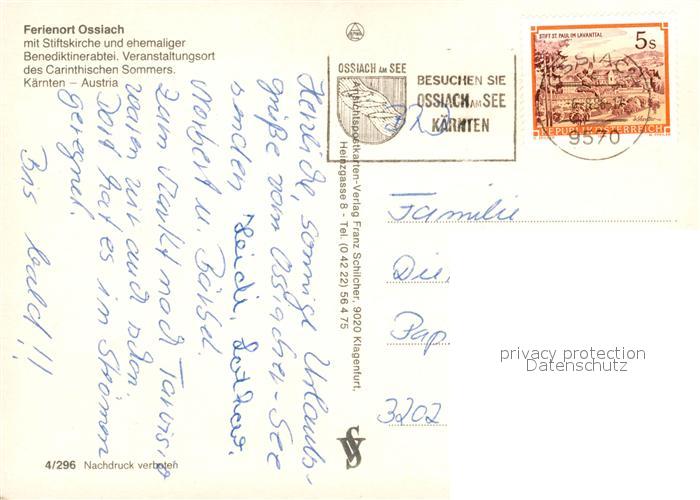 Ferienort Ossiach
mit Stiftskirche und ehemaliger
Benediktinerabtei. Veranstaltungsort
des Carinthischen Sommers.
Kärnten – Austria
Herzliche, sonnige Urlaubs-
grüße vom Ossiacher-See
senden Heidi, Lothar,
Norbert u. Bärbel.
Zum Markt nach Tarvis
waren wir auch schon.
Dort hat es in Strömen
geregnet.
Bis bald!!
4/296 Nachdruck verboten
Ansichtspostkarten-Verlag Franz Schilcher, 9020 Klagenfurt,
Heinzgasse 8 - Tel. (0 42 22) 56 4 75
OSSIACH AM SEE
BESUCHEN SIE
OSSIACH AM SEE
KÄRNTEN
STIFT ST. PAUL IM LAVANTTAL
5 S
REPUBLIK ÖSTERREICH
OSSIACH
9570
Familie
Die
Pap
3202
privacy protection
Datenschutz